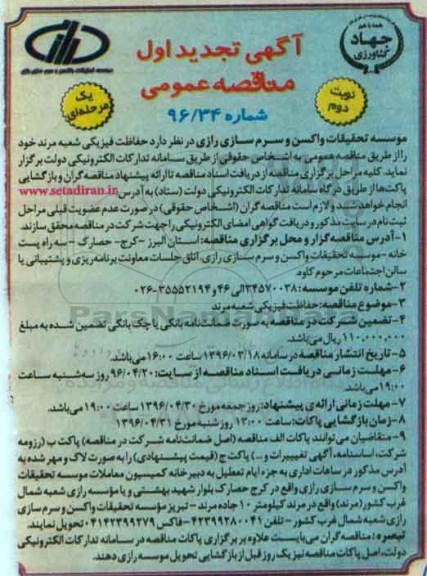 آگهی تجدید اول
مناقصه عمومی
شماره ۹۶/۳۴
جهاد کشاورزی
نوبت دوم
یک مرحله‌ای
موسسه تحقیقات واکسن و سرم سازی رازی در نظر دارد حفاظت فیزیکی شعبه مرند خود
را از طریق مناقصه عمومی به اشخاص حقوقی از طریق سامانه تدارکات الکترونیکی دولت برگزار
نماید. کلیه مراحل برگزاری مناقصه از دریافت اسناد مناقصه تا ارائه پیشنهاد مناقصه گران و بازگشایی
پاکت‌ها از طریق درگاه سامانه تدارکات الکترونیکی دولت (ستاد) به آدرس www.setadiran.ir
انجام خواهد شد و لازم است مناقصه گران (اشخاص حقوقی) در صورت عدم عضویت قبلی مراحل
ثبت نام در سایت مذکور و دریافت گواهی امضای الکترونیکی را جهت شرکت در مناقصه محقق سازند.
۱- آدرس مناقصه گزار و محل برگزاری مناقصه: استان البرز - کرج - حصارک - سه راه پست
خانه - موسسه تحقیقات واکسن و سرم سازی رازی، اتاق جلسات معاونت برنامه ریزی و پشتیبانی یا
سالن اجتماعات مرحوم کاوه.
۲- شماره تلفن موسسه: ۳۴۵۷۰۰۳۸ الی ۴۶ و ۳۵۵۵۲۱۹۴-۰۲۶
۳- موضوع مناقصه: حفاظت فیزیکی شعبه مرند
۴- تضمین شرکت در مناقصه به صورت ضمانت‌نامه بانکی یا چک بانکی تضمین شده به مبلغ
۱۱۰,۰۰۰,۰۰۰ ریال می‌باشد.
۵- تاریخ انتشار مناقصه در سامانه ۱۳۹۶/۰۳/۱۸ ساعت ۱۶:۰۰ می‌باشد.
۶- مهلت زمانی دریافت اسناد مناقصه از سایت: ۹۶/۰۴/۲۰ روز سه شنبه ساعت
۱۹:۰۰ می‌باشد.
۷- مهلت زمانی ارائه‌ی پیشنهاد: روز جمعه مورخ ۱۳۹۶/۰۴/۳۰ ساعت ۱۹:۰۰ می‌باشد.
۸- زمان بازگشایی پاکات: ساعت ۱۳:۰۰ روز شنبه مورخ ۱۳۹۶/۰۴/۳۱
۹- متقاضیان می‌توانند پاکات الف مناقصه (اصل ضمانت‌نامه شرکت در مناقصه) پاکت ب (رزومه
شرکت، اساسنامه، آگهی تغییرات و...) پاکت ج (قیمت پیشنهادی) را به صورت لاک و مهر شده به
آدرس مذکور در ساعات اداری به جزء ایام تعطیل به دبیرخانه کمیسیون معاملات موسسه تحقیقات
واکسن و سرم سازی رازی واقع در کرج حصارک بلوار شهید بهشتی و یا مؤسسه رازی شعبه شمال
غرب کشور (مرند) واقع در مرند کیلومتر ۱۰ جاده مرند - تبریز مؤسسه تحقیقات واکسن و سرم سازی
رازی شعبه شمال غرب کشور - تلفن ۴۲۳۹۹۲۸۰۰۴۱ - فاکس ۰۴۱۴۲۳۹۹۳۷۹ تحویل نمایند.
تبصره: مناقصه گران می‌بایست علاوه بر بارگزاری پاکات مناقصه در سامانه تدارکات الکترونیکی
دولت، اصل پاکات مناقصه نیز یک روز قبل از بازگشایی تحویل موسسه رازی دهند.